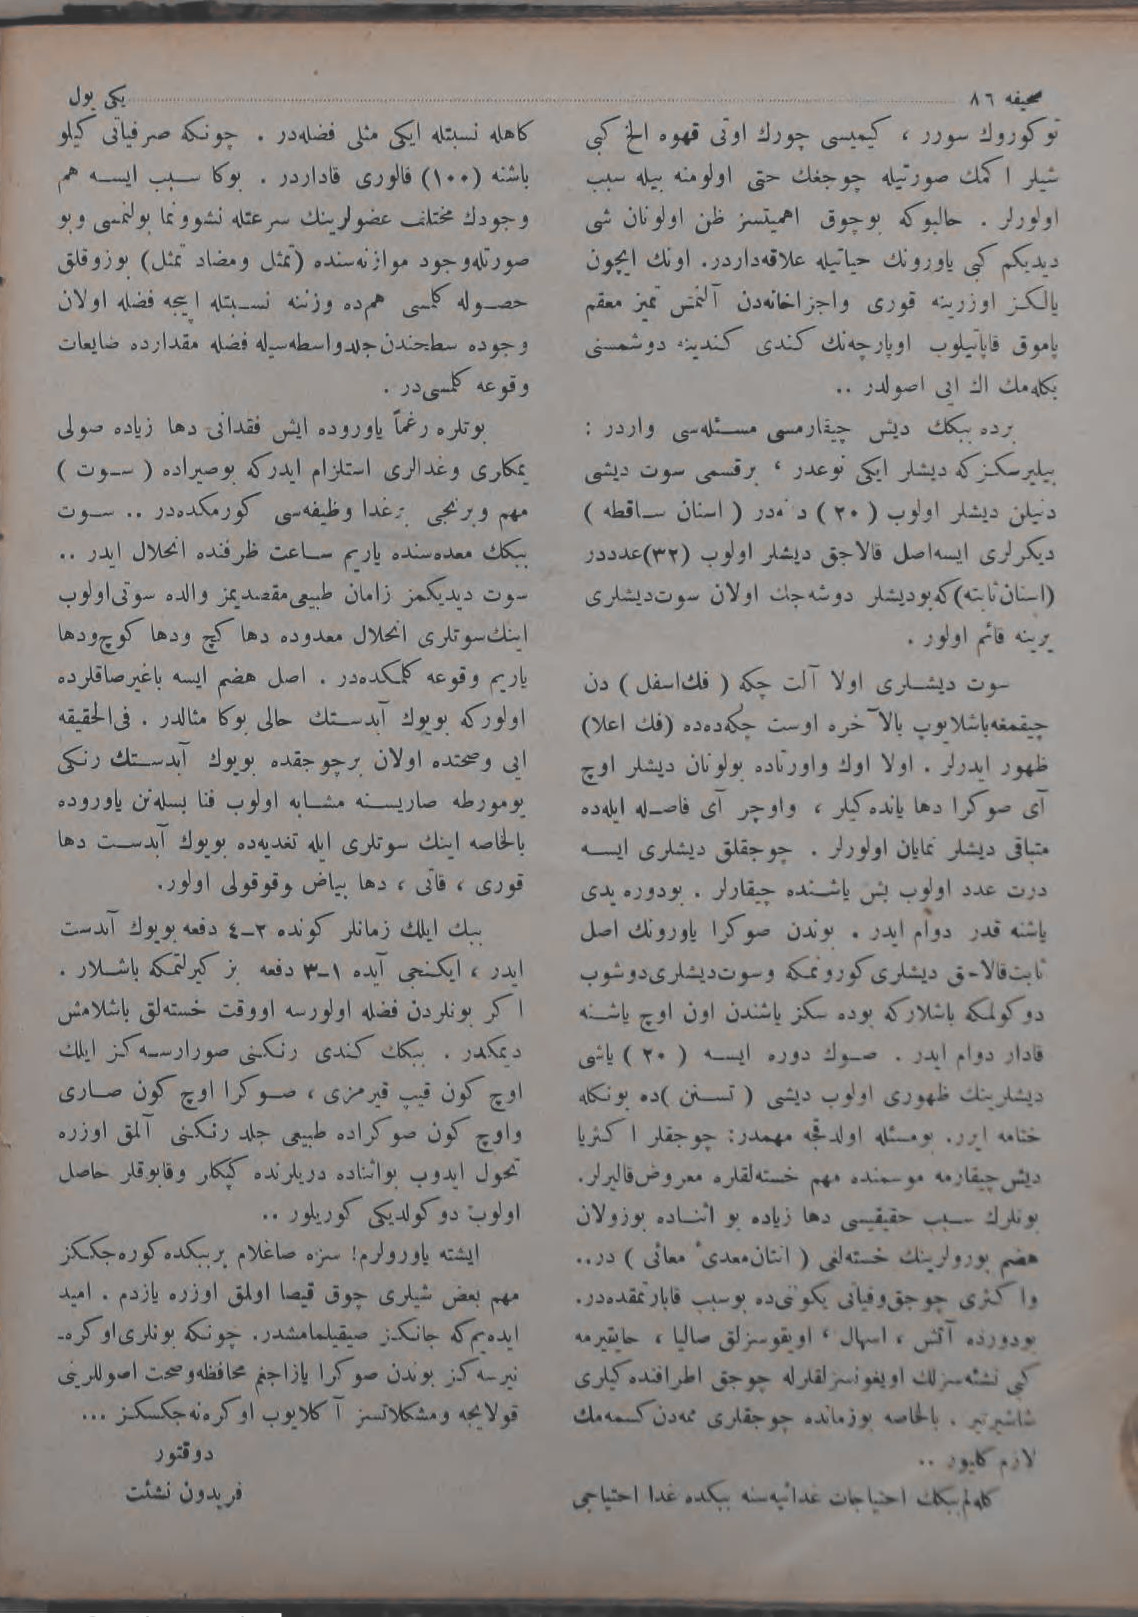 صحیفه ٨٦
یکی یول
توکوروك سورر ، کیمیسی چورك اوتی قهوه الخ کبی
شیلر اکمك صورتیله چوجغك حتی اولومنه بیله سبب
اولورلر . حالبوکه بوچوق اهمیتسز ظن اولونان شی
دیدیکم کبی یاورونك حیاتیله علاقه‌داردر. اونك ایچون
یالکز اوزرینه قوری واجزاخانه‌دن آلنمش تمیز معقم
پاموق قاپاتیلوب اوپارچه‌نك کندی کندینه دوشمسنی
بکله‌مك اك ایی اصولدر ..
برده ببکك دیش چیقارمسی مسئله‌سی واردر :
بیلیرسکز که دیشلر ایکی نوعدر ، برقسمی سوت دیشی
دنیلن دیشلر اولوب ( ٢٠ ) دنه‌در ( اسنان ساقطه )
دیکرلری ایسه‌اصل قالاجق دیشلر اولوب (٣٢)عدددر
(اسنان‌ثابته)که‌بودیشلر دوشه‌جك اولان سوت‌دیشلری
یرینه قائم اولور .
سوت دیشلری اولا آلت چکه ( فك‌اسفل ) دن
چیقمغه‌باشلایوب بالآخره اوست چکه‌ده‌ده (فك اعلا)
ظهور ایدرلر . اولا اوك واورتاده بولونان دیشلر اوچ
آی صوکرا دها یانده‌کیلر ، واوچر آی فاصله ایله‌ده
متباقی دیشلر نمایان اولورلر . چوجقلق دیشلری ایسه
درت عدد اولوب بش یاشنده چیقارلر . بودوره یدی
یاشنه قدر دوام ایدر . بوندن صوکرا یاورونك اصل
ثابت‌قالاجق دیشلری‌کورونمکه وسوت‌دیشلری‌دوشوب
دوکولمکه باشلارکه بوده سکز یاشندن اون اوچ یاشنه
قادار دوام ایدر . صوك دوره ایسه ( ٢٠ ) یاشی
دیشلرینك ظهوری اولوب دیشی ( تسنن )ده بونکله
ختامه ایرر. بومسئله اولدقجه مهمدر: چوجقلر اکثریا
دیش‌چیقارمه موسمنده مهم خسته‌لقلره معروض‌قالیرلر.
بونلرك سبب حقیقیسی دها زیاده بو اثناده بوزولان
هضم بورولرینك خسته‌لغی ( انتان‌معدیٔ معائی ) در..
واکثری چوجق‌وفیاتی یکونی‌ده بوسبب قابارتمقده‌در.
بودورده آتش ، اسهال ، اویقوسزلق صالیا ، حایقیرمه
کبی نشئه‌سزلك اویغونسزلقلرله چوجق اطرافنده‌کیلری
شاشیرتیر . بالخاصه بوزمانده چوجقلری ممه‌دن کسمه‌مك
لازم کلیور ..
کله‌لم‌ببکك احتیاجات غدائیه‌سنه ببکده غدا احتیاجی
کاهله نسبتله ایکی مثلی فضله‌در . چونکه صرفیاتی کیلو
باشنه (١٠٠) قالوری قاداردر . بوکا سبب ایسه هم
وجودك مختلف عضولرینك سرعتله نشوونما بولنمسی وبو
صورتله‌وجود موازنه‌سنده (تمثل ومضاد تمثل) بوزوقلق
حصوله کلمسی هم‌ده وزننه نسبتله ایجه فضله اولان
وجوده سطحندن‌جلدواسطه‌سیله فضله مقدارده ضایعات
وقوعه کلمسی‌در .
بوتلره رغماً یاوروده ایش فقدانی دها زیاده صولی
یمکاری وغدالری استلزام ایدرکه بوصیراده ( سوت )
مهم وبرنجی برغدا وظیفه‌سی کورمکده‌در .. سوت
ببکك معده‌سنده یاریم ساعت ظرفنده انحلال ایدر ..
سوت دیدیکمز زامان طبیعی‌مقصدیمز والده سوتی‌اولوب
اینك‌سوتلری انحلال معدوده دها کچ ودها کوچ‌ودها
یاریم وقوعه کلمکده‌در . اصل هضم ایسه باغیرصاقلرده
اولورکه بویوك آبدستك حالی بوکا مثالدر . فی‌الحقیقه
ایی وصحتده اولان برچوجقده بویوك آبدستك رنکی
یومورطه صاریسنه مشابه اولوب فنا بسله‌نن یاوروده
بالخاصه اینك سوتلری ایله تغدیه‌ده بویوك آبدست دها
قوری ، قاتی ، دها بیاض وقوقولی اولور.
ببك ایلك زمانلر کونده ٣-٤ دفعه بویوك آبدست
ایدر ، ایکنجی آیده ١-٣ دفعه بز کیرلتمکه باشلار .
اکر بونلردن فضله اولورسه اووقت خسته‌لق باشلامش
دیمکدر . ببکك کندی رنکنی صورارسه‌کز ایلك
اوچ کون قیپ قیرمزی ، صوکرا اوچ کون صاری
واوچ کون صوکراده طبیعی جلد رنکنی آلمق اوزره
تحول ایدوب بواثناده دریلرنده کپکلر وقابوقلر حاصل
اولوب دوکولدیکی کوریلور ..
ایشته یاورولرم! سزه صاغلام برببکده کوره‌جککز
مهم بعض شیلری چوق قیصا اولمق اوزره یازدم . امید
ایده‌یم‌که جانکز صیقیلمامشدر. چونکه بونلری‌اوکره‌-
نیرسه‌کز بوندن صوکرا یازاجغم محافظه‌وصحت اصوللرینی
قولایجه ومشکلاتسز آکلایوب اوکره‌نه‌جکسکز ...
دوقتور
فریدون نشئت